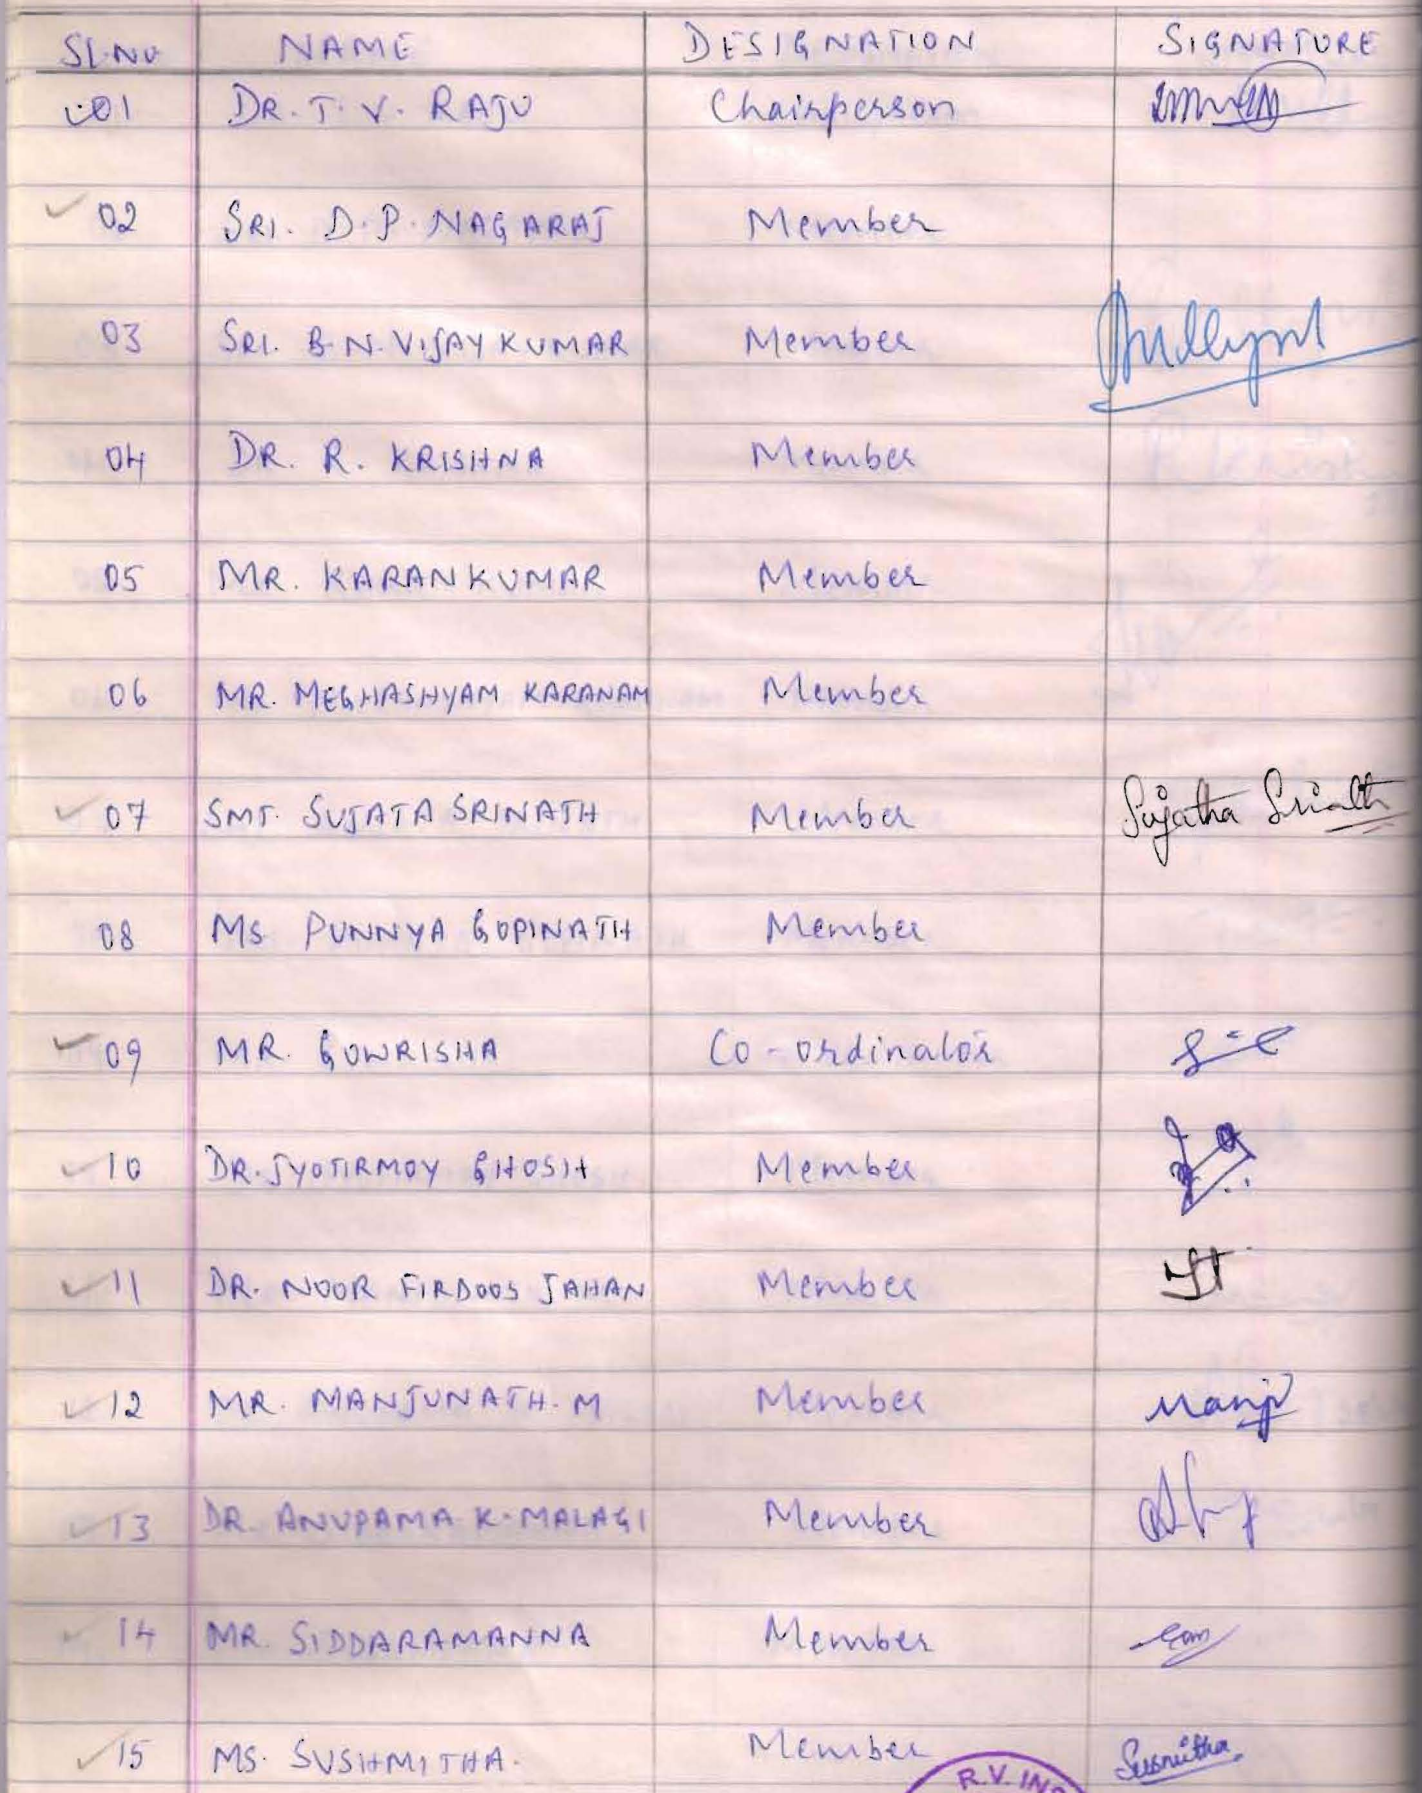 SL.NO NAME DESIGNATION SIGNATURE
01 DR. T. V. RAJU Chairperson
02 SRI. D.P. NAGARAJ Member
03 SRI. B.N. VIJAY KUMAR Member
04 DR. R. KRISHNA Member
05 MR. KARANKUMAR Member
06 MR. MEGHASHYAM KARANAM Member
07 SMT. SUJATA SRINATH Member Sujatha Srinath
08 MS PUNNYA GOPINATH Member
09 MR. GOWRISHA Co-ordinator
10 DR. JYOTIRMOY GHOSH Member
11 DR. NOOR FIRDOOS JAHAN Member
12 MR. MANJUNATH. M Member Manju
13 DR. ANUPAMA K. MALAGI Member
14 MR. SIDDARAMANNA Member
15 MS. SUSHMITHA. Member Susmitha
R.V. INS